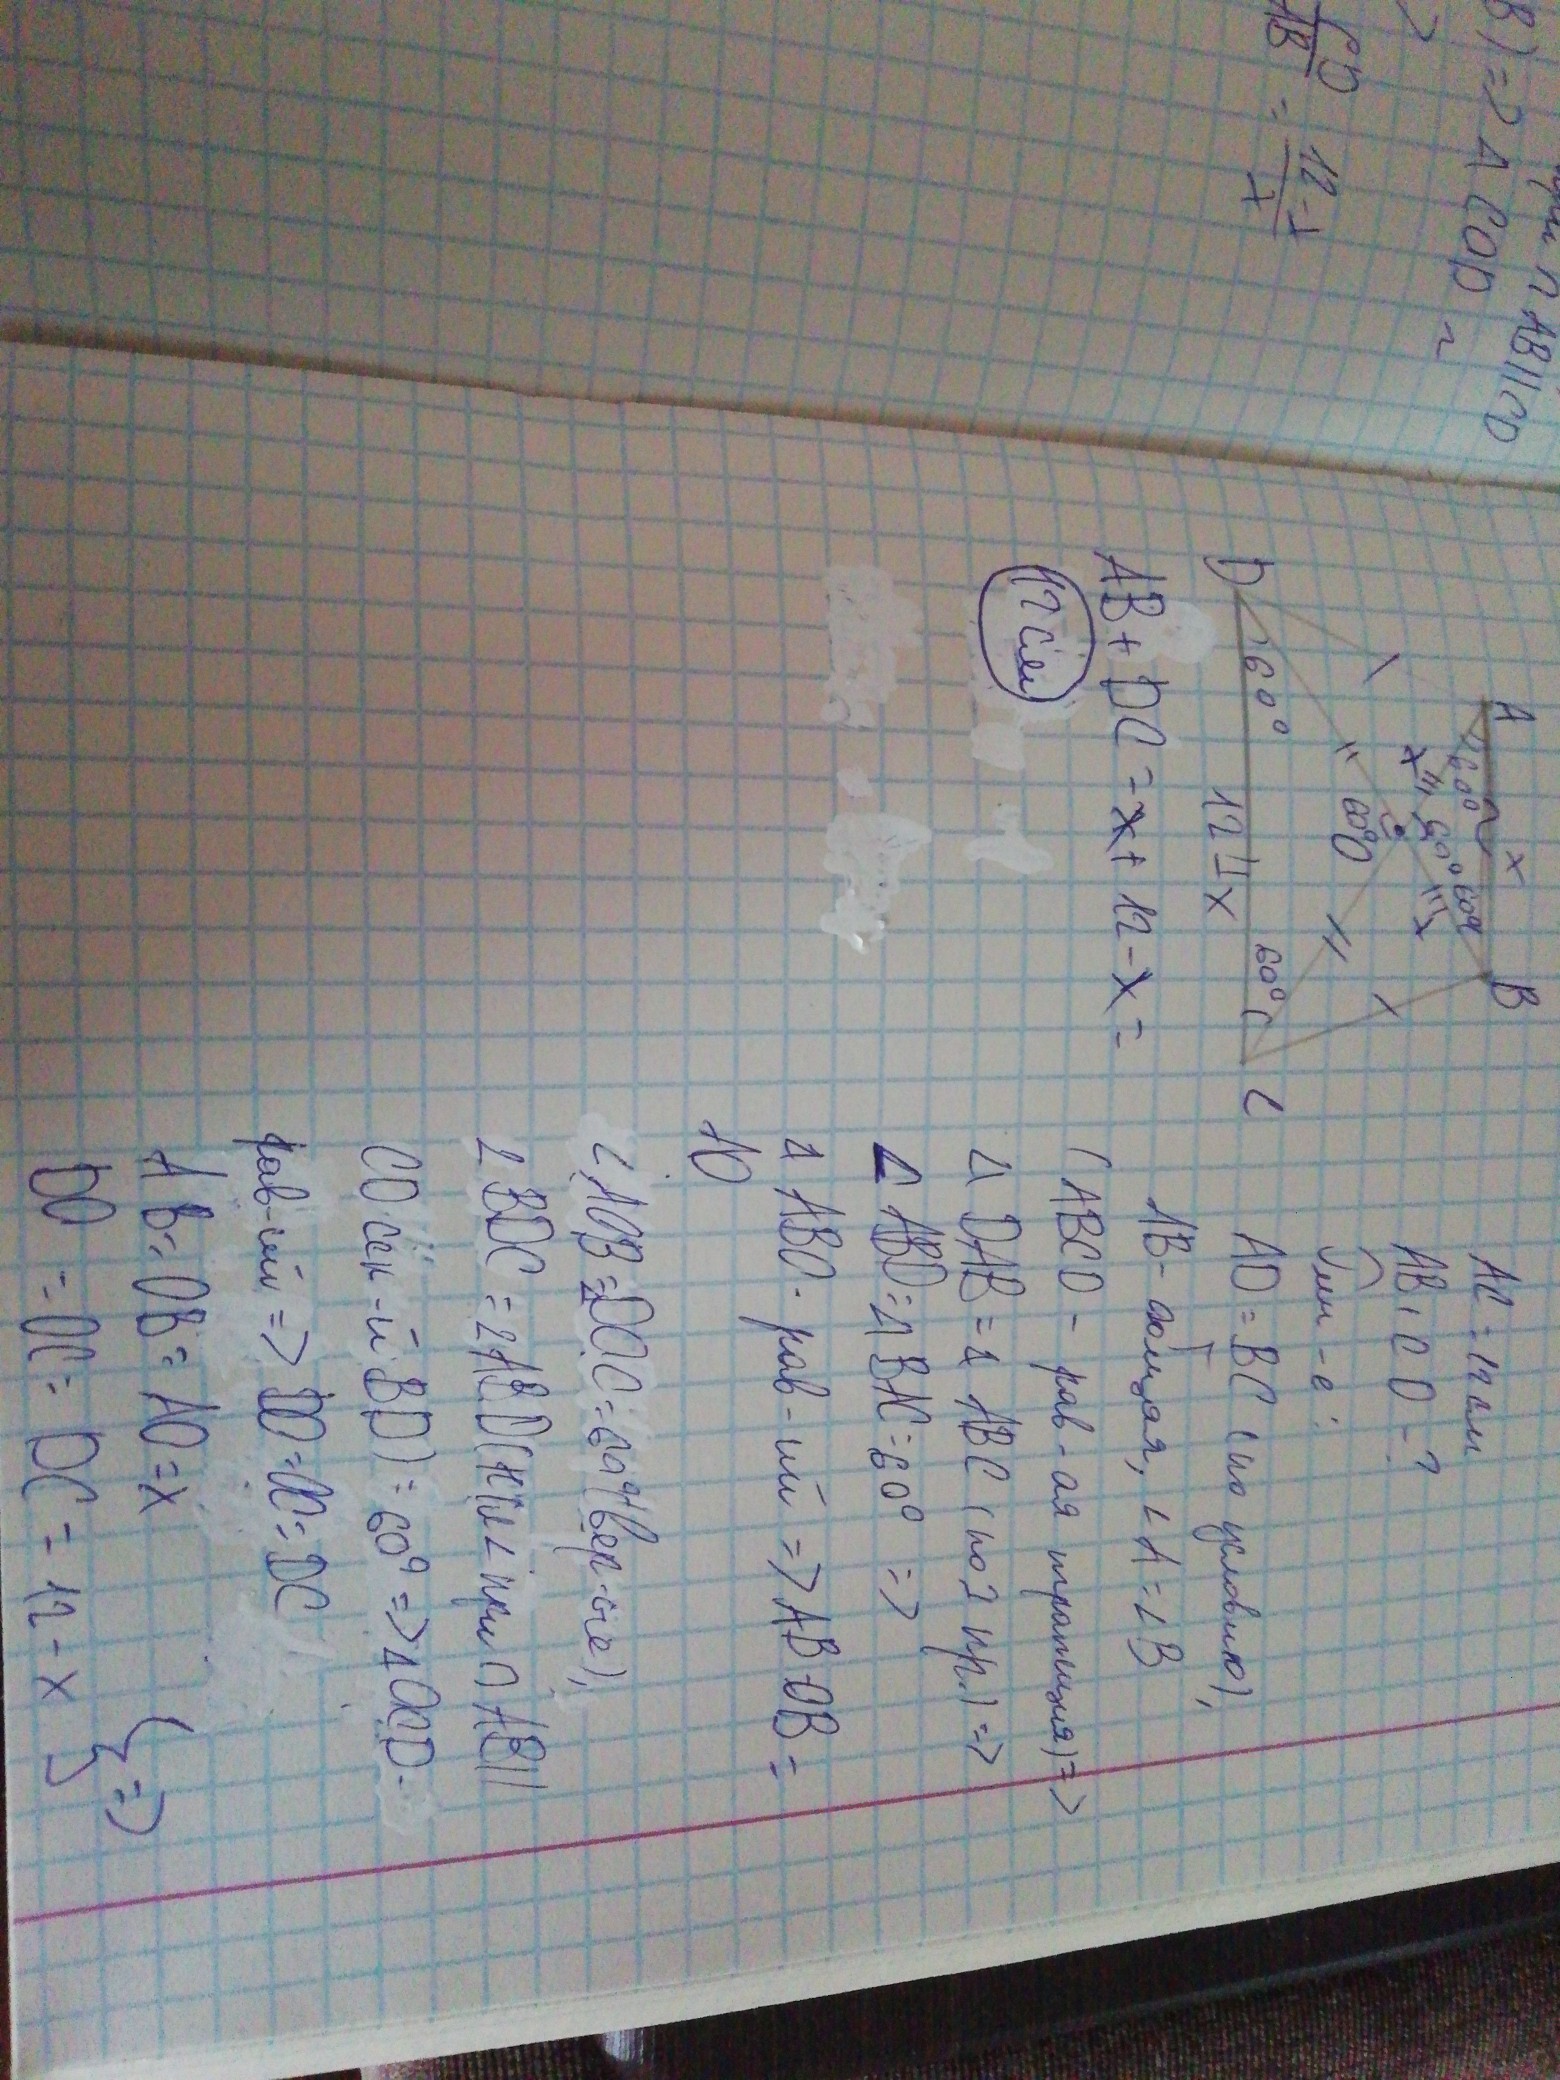 B) => Δ COD ~
CD/AB = 12-x/x
при ∩ AB||CD
A x B
60° 60° 60°
x x
O
60°
D 60° 60° C
12-x
AB + DC = x + 12 - x =
12 см
AC = 12 см
AB, CD - ?
AD = BC (по условию),
AB - общая, ∠A = ∠B
(ABCD - рав-ая трапеция) =>
Δ DAB = Δ ABC (по 2 пр.) =>
∠ ABD = ∠ BAC = 60° =>
Δ ABO - рав-ий => AB = OB =
AO
∠ AOB = ∠DOC = 60° (вер-ые),
∠ BDC = ∠ABD (н/л ∠ при ∩ AB||
CD сек-й BD) = 60° => Δ OCD -
рав-ий => DO = OC = DC
AB = OB = AO = x
DO = OC = DC = 12 - x } =>